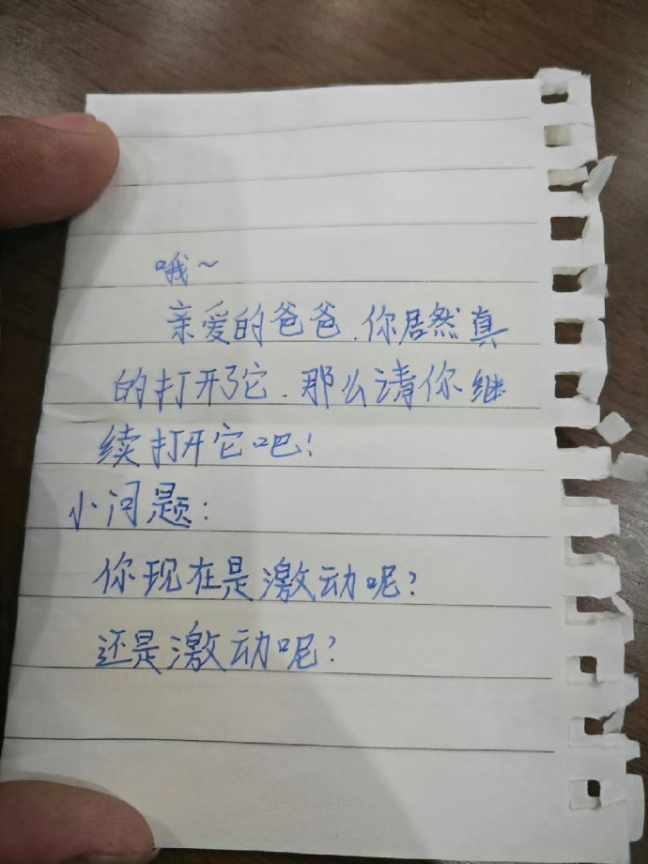 哦~
亲爱的爸爸.你居然真
的打开了它.那么请你继
续打开它吧!
小问题:
你现在是激动呢?
还是激动呢?